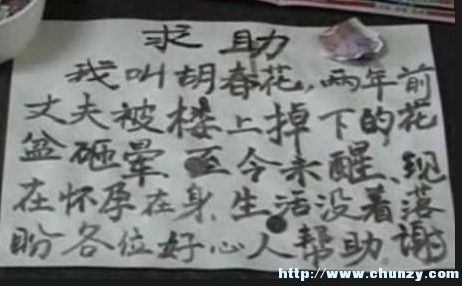 求助
我叫胡春花,两年前
丈夫被楼上掉下的花
盆砸晕 至今未醒、现
在怀孕在身、生活没着落
盼各位好心人帮助、谢
http://www.chunzy.com